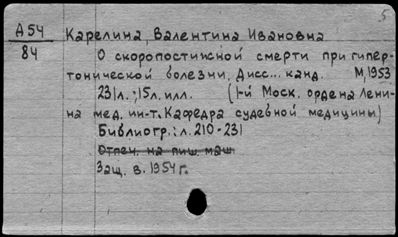 5
А54
84
Карелина, Валентина Ивановна
О скоропостижной смерти при гипер-
тонической болезни. Дисс... канд. М, 1953
231л.; 15л. илл. (1-й Моск. ордена Лени-
на мед. ин-т. Кафедра судебной медицины)
Библиогр.: л. 210-231
Отпеч. на пиш. маш.
Защ. в. 1954г.